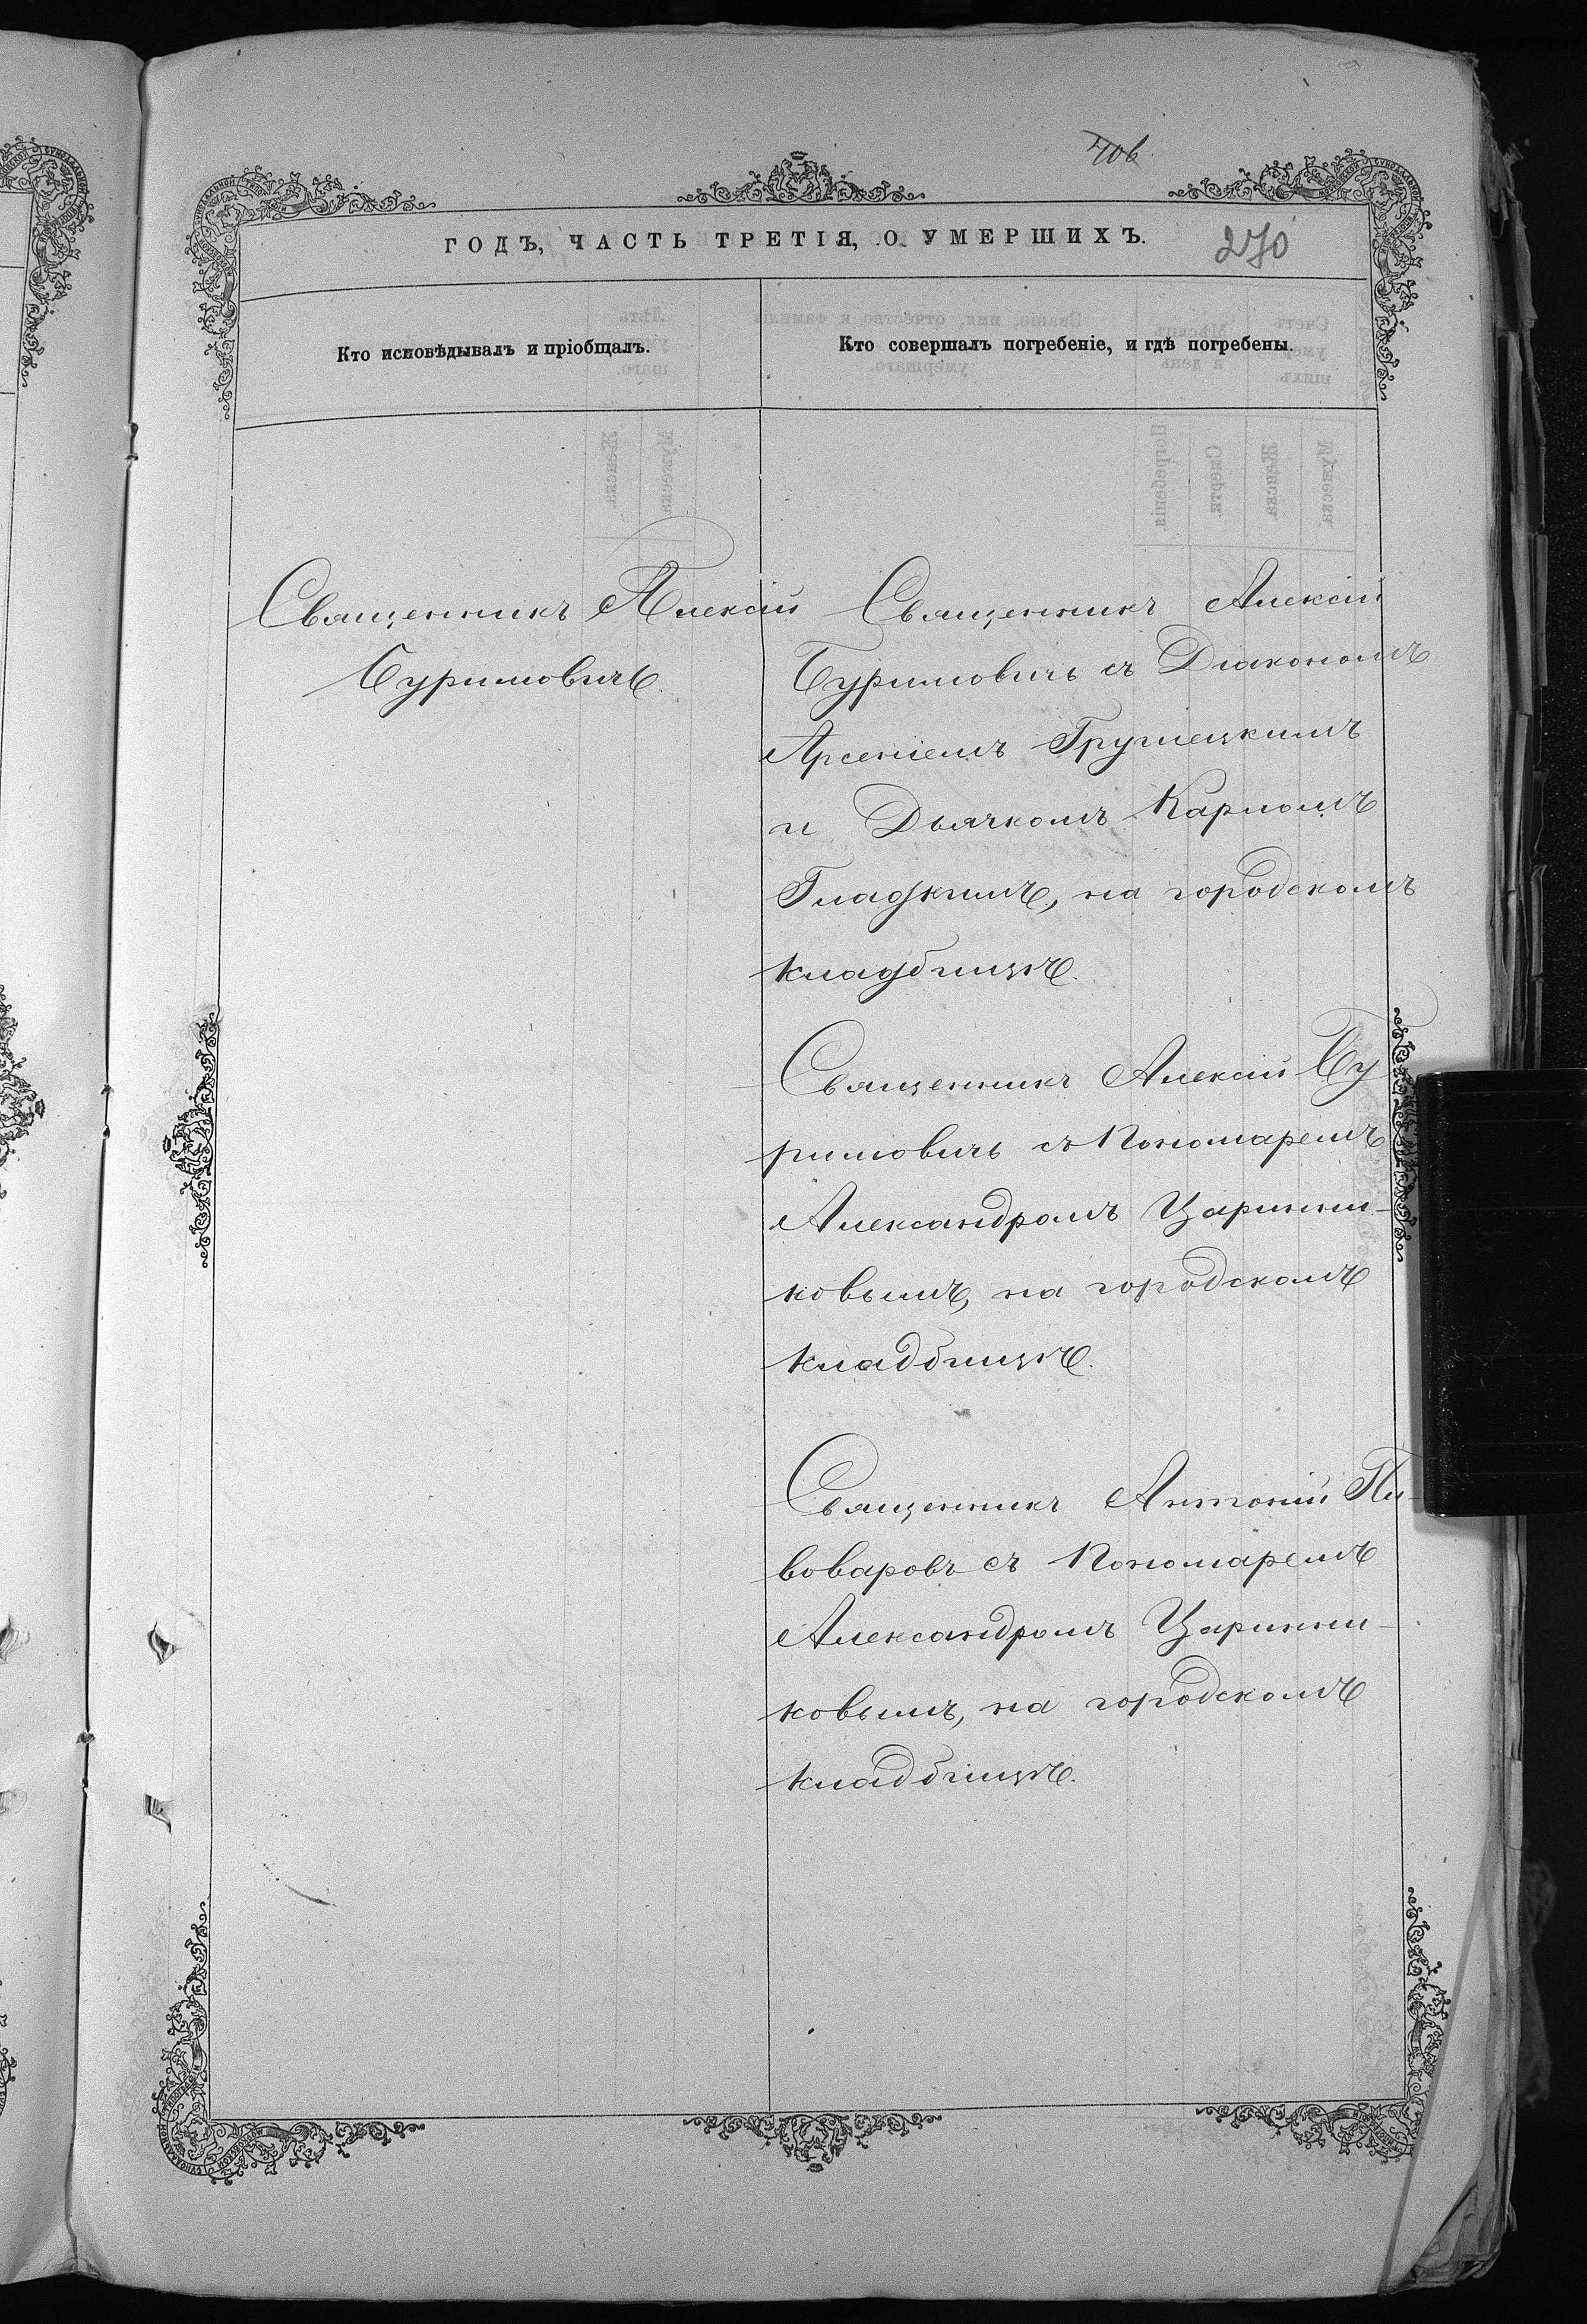 406
ГОДЪ, ЧАСТЬ ТРЕТІЯ, О УМЕРШИХЪ.
270
Кто исповѣдывалъ и пріобщалъ.
Кто совершалъ погребеніе, и гдѣ погребены.
Священникъ Алексій
Буримовичъ.
Священникъ Алексій
Буримовичъ съ Діакономъ
Арсеніемъ Грушецкимъ
и Дьячкомъ Карпомъ
Гладкимъ, на городскомъ
кладбищѣ.
Священникъ Алексій Бу
римовичъ съ Пономаремъ
Александромъ Царинни-
ковымъ, на городскомъ
кладбищѣ.
Священникъ Антоній Пи-
воваровъ съ Пономаремъ
Александромъ Царинни-
ковымъ, на городскомъ
кладбищѣ.